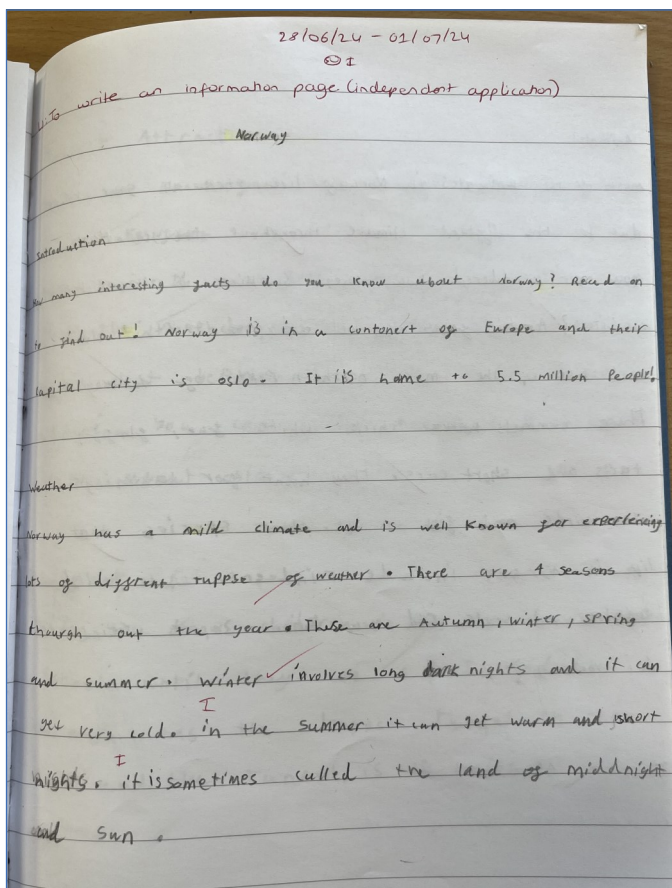 28/06/24 - 01/07/24
I
To write an information page (independent application)
Norway
Introduction
How many interesting facts do you know about Norway? Read on
to find out! Norway is in a contonert of Europe and their
capital city is oslo. It iis home to 5.5 million People!
Weather
Norway has a mild climate and is well known for experiencing
lots of different tuppse of weather. There are 4 seasons
thourgh out the year. These are Autumn, winter, spring
and summer. Winter involves long dark nights and it can
get very cold. I in the summer it can get warm and short
nights. I it is sometimes called the land of middnight
and sun.